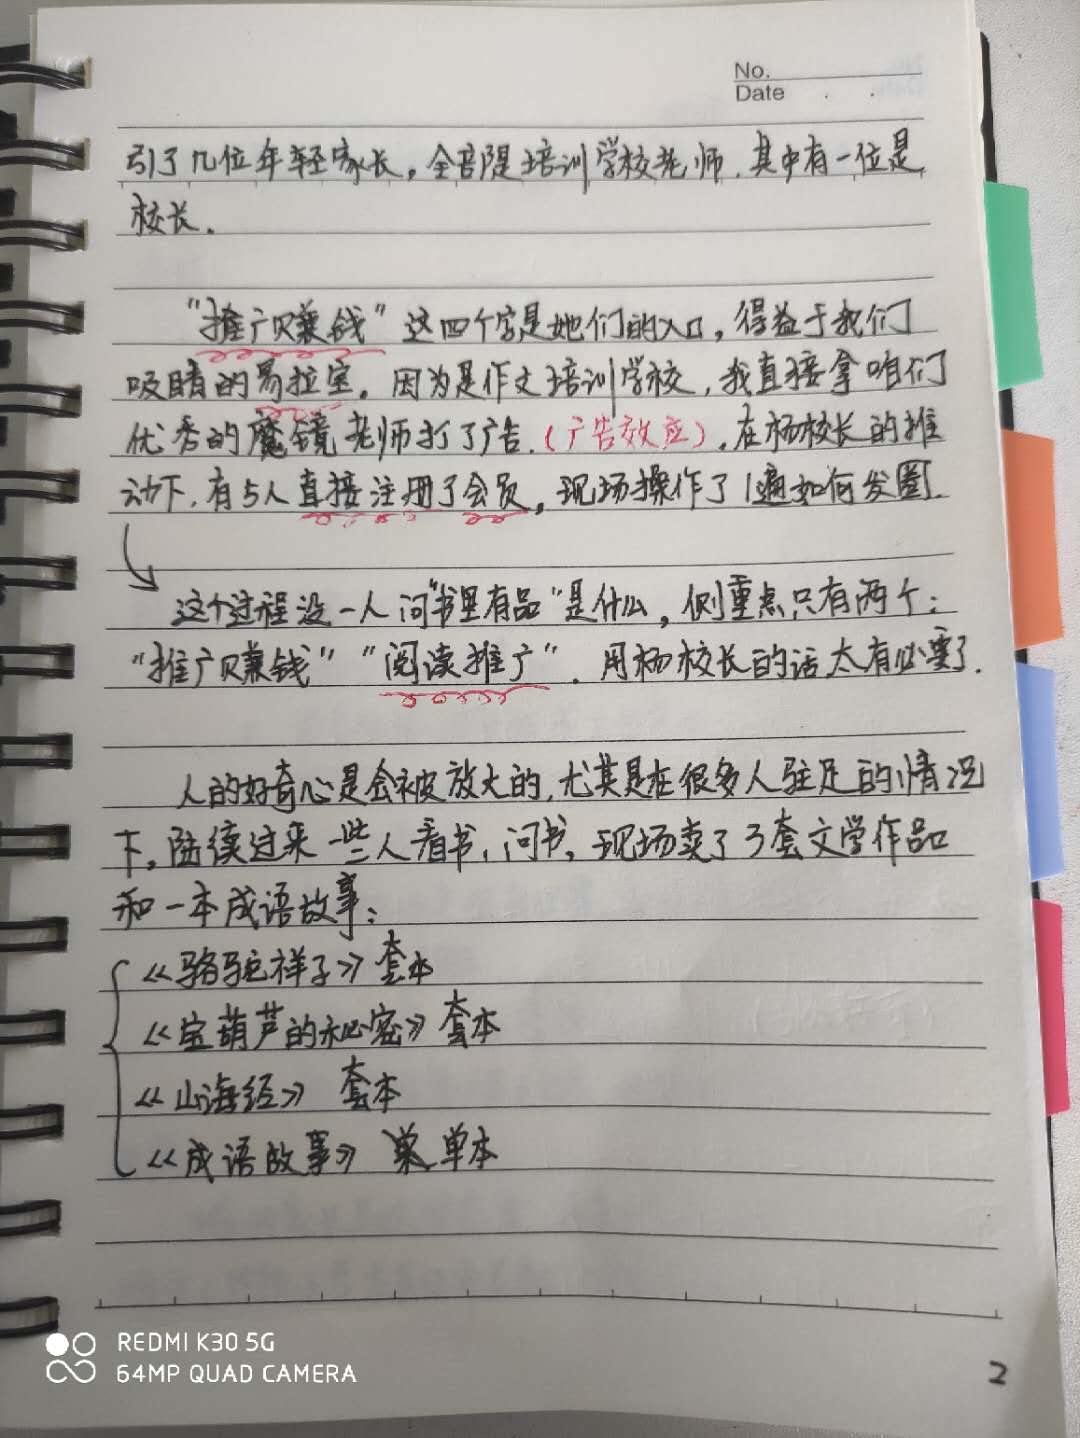 No.
Date
引了几位年轻家长，全部是培训学校老师．其中有一位是
校长．
“推广赚钱”这四个字是她们的入口，得益于我们
吸睛的易拉宝。因为是作文培训学校，我直接拿咱们
优秀的魔镜老师打了广告．（广告效应）．在杨校长的推
动下．有5人直接注册了会员，现场操作了1遍如何发圈．
这个过程没一人问“书里有品”是什么，侧重点只有两个：
“推广赚钱”“阅读推广”．用杨校长的话太有必要了．
人的好奇心是会被放大的，尤其是在很多人驻足的情况
下，陆续过来一些人看书、问书，现场卖了3套文学作品
和一本成语故事：
《骆驼祥子》套本
《宝葫芦的秘密》套本
《山海经》 套本
《成语故事》 单本
2
REDMI K30 5G
64MP QUAD CAMERA